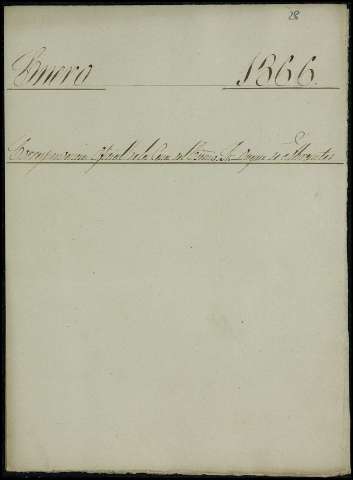 28
Enero 1866.
Correspondencia Oficial de la Casa del Exmo. Sr. Duque de Abrantes